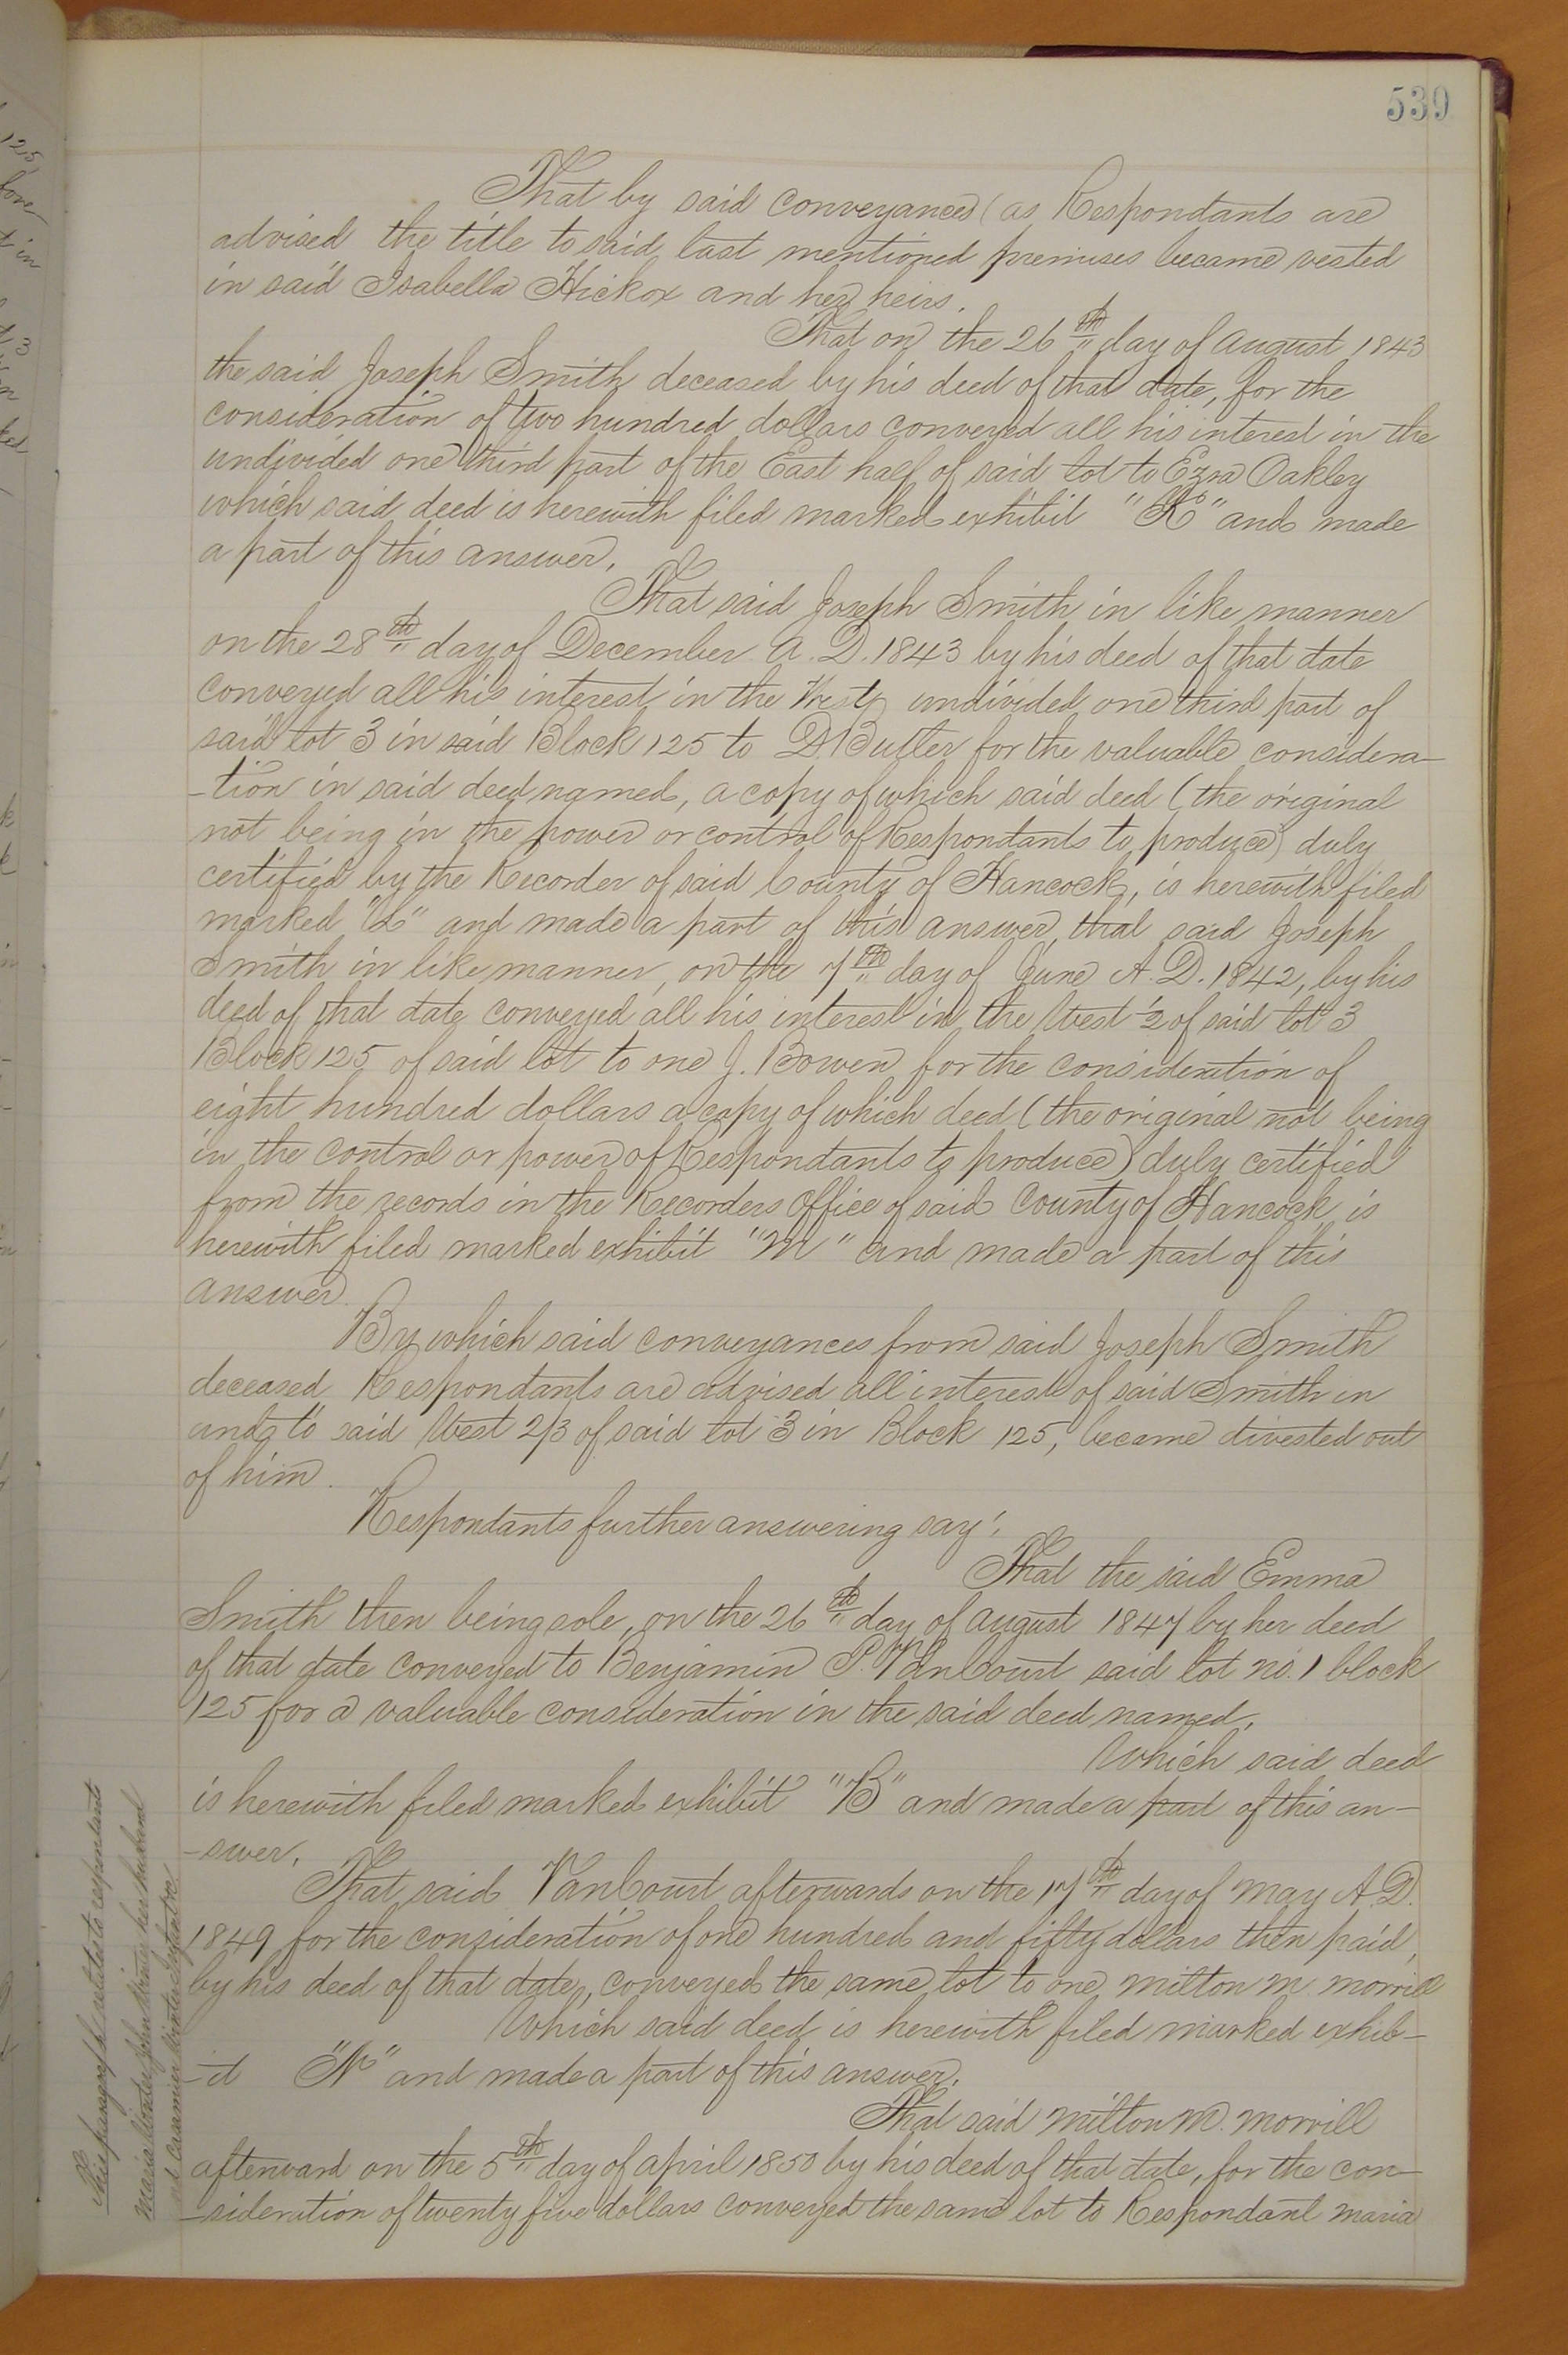 539
That by said conveyances (as Respondants are
advised the title to said last mentioned premises became vested
in said Isabella Hickox and her heirs.
That on the 26th day of august 1843
the said Joseph Smith deceased by his deed of that date, for the
consideration of two hundred dollars conveyed all his interest in the
undivided one third part of the East half of said lot to Ezra Oakley
which said deed is herewith filed marked exhibit "K" and made
a part of this answer.
That said Joseph Smith in like manner
on the 28th day of December A.D. 1843 by his deed of that date
conveyed all his interest in the West undivided one third part of
said lot 3 in said Block 125 to D. Butler for the valuable considera-
-tion in said deed named, a copy of which said deed (the original
not being in the power or control of Respondants to produce) duly
certified by the Recorder of said County of Hancock, is herewith filed
marked "L" and made a part of this answer, that said Joseph
Smith in like manner, on the 7th day of June A.D. 1842, by his
deed of that date conveyed all his interest in the West ½ of said lot 3
Block 125 of said lot to one J. Bowen for the consideration of
eight hundred dollars a copy of which deed (the original not being
in the control or power of Respondants to produce) duly certified
from the records in the Recorders Office of said County of Hancock is
herewith filed marked exhibit "M" and made a part of this
answer
By which said conveyances from said Joseph Smith
deceased Respondants are advised all interest of said Smith in
and to said West 2/3 of said lot 3 in Block 125, became divested out
of him.
Respondants further answering say:
That the said Emma
Smith then being sole, on the 26th day of august 1847 by her deed
of that date conveyed to Benjamin P. VanCourt said lot no. 1 block
125 for a valuable consideration in the said deed named.
Which said deed
is herewith filed marked exhibit "B" and made a part of this an-
-swer.
That said VanCourt afterwards on the 17th day of May A.D.
1849 for the consideration of one hundred and fifty dollars then paid,
by his deed of that date, conveyed the same lot to one Milton M. Morrill
Which said deed is herewith filed marked exhib-
-it "N" and made a part of this answer.
That said Milton M. Morrill
afterward on the 5th day of april 1850 by his deed of that date, for the con-
-sideration of twenty five dollars conveyed the same lot to Respondant Maria
This paragraph relates to respondants
her husband